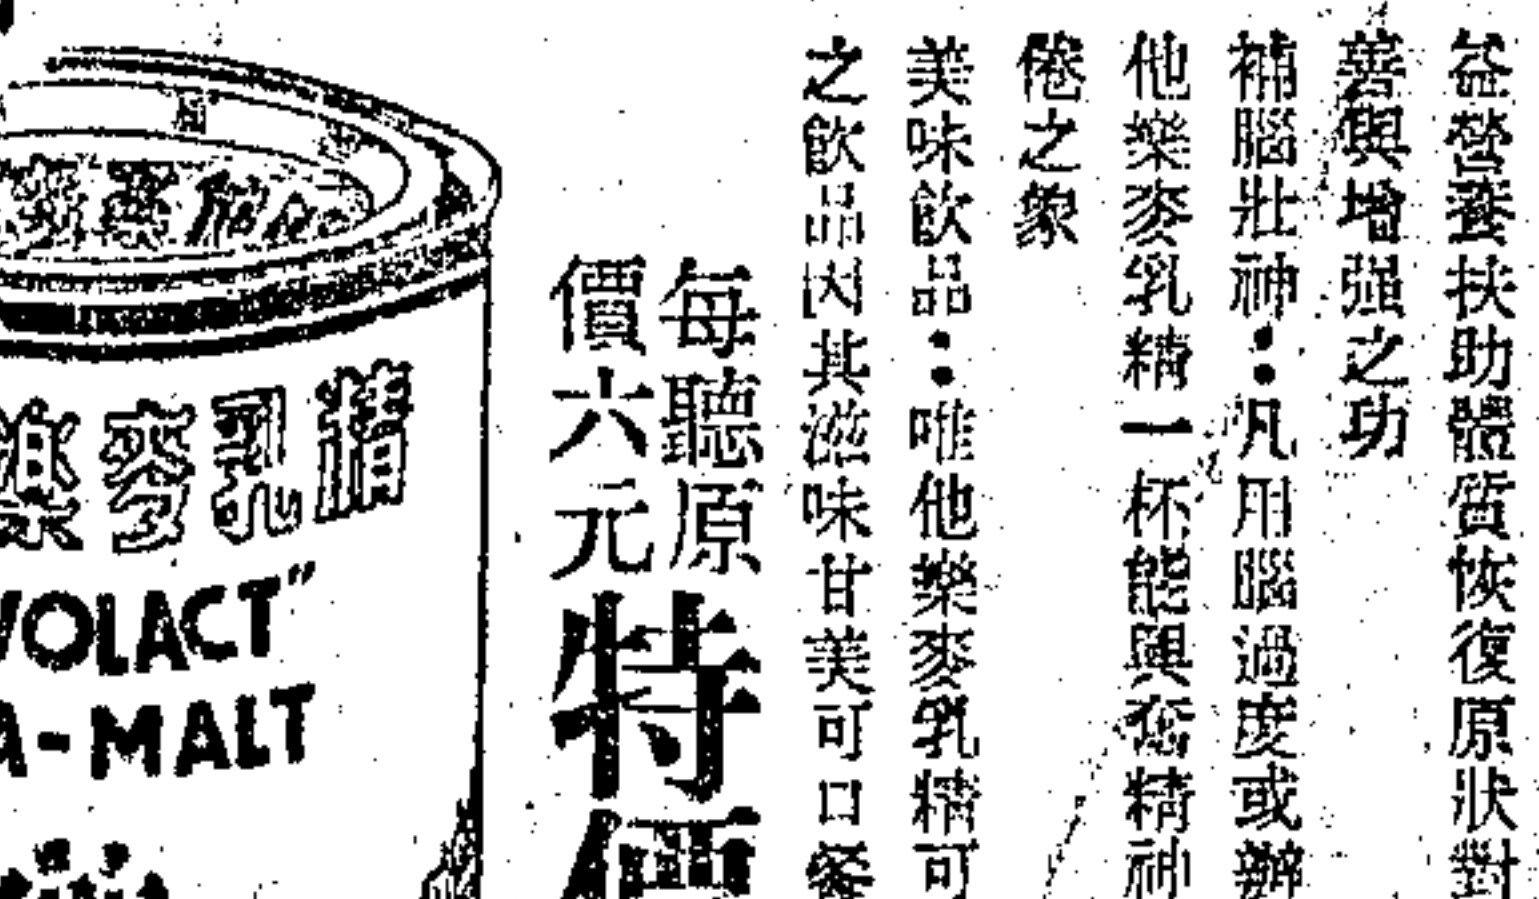 益營養扶助體質恢復原狀對
善與增强之功
補腦壯神：凡用腦過度或辦
他樂麥乳精一杯能興奮精神
倦之象
美味飲品：唯他樂麥乳精可
之飲品因其滋味甘美可口餐
每聽原
價六元
特價
樂麥乳精
VOLACT"
A-MALT